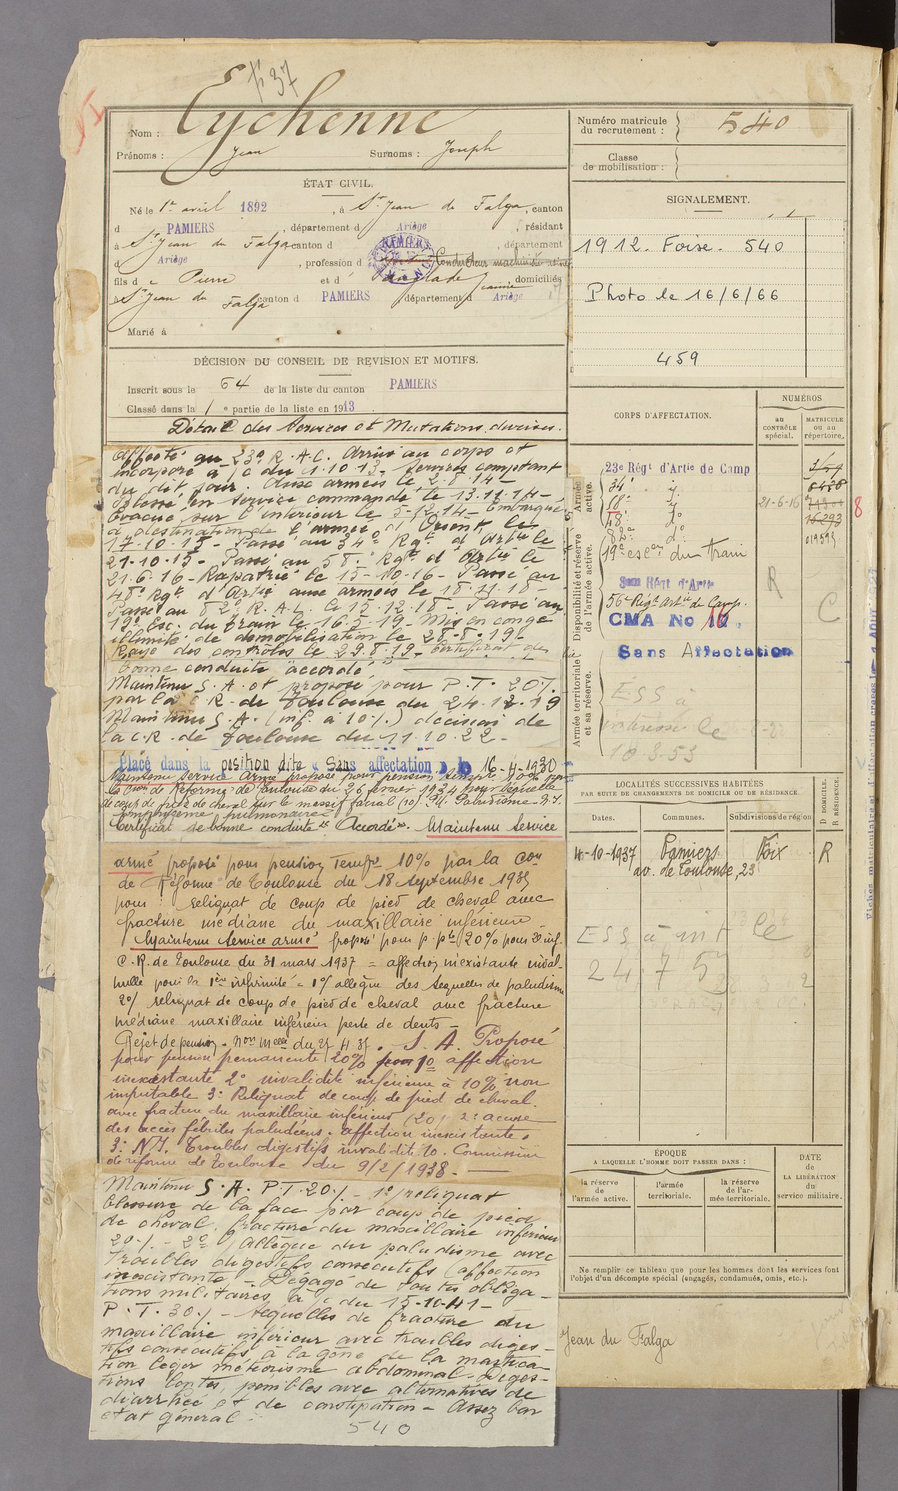 P 37
Nom : Eychenne
Prénoms : Jean Surnoms : Joseph
Numéro matricule du recrutement : 540
Classe de mobilisation :
ÉTAT CIVIL.
Né le 1er avril 1892, à St Jean de Falga, canton
d PAMIERS, département d Ariège, résidant
à St Jean du Falga canton d PAMIERS, département
d Ariège, profession d Conducteur
fils d e Pierre et d domiciliés
à St Jean du Falga canton d PAMIERS département d Ariège
Marié à
DÉCISION DU CONSEIL DE REVISION ET MOTIFS.
Inscrit sous le n° 64 de la liste du canton PAMIERS
Classé dans la 1 e partie de la liste en 1913
Détail des Services et Mutations diverses.
Affecté au 23e R.A.C. Arrivé au corps et
incorporé à /c du 1.10.13. Services comptant
du dit jour. Aux armées le 2.8.14 –
Blessé en service commandé le 13.11.14 –
Evacué sur l'intérieur le 5-12-14 – Embarqué
à destination de l'armée d'Orient le
17-10-15 – Passé au 34e Rgt d'Artie le
21-10-15 – Passé au 58e Rgt d'Artie le
21.6.16 – Rapatrié le 15-10-16 – Passé au
48e Rgt d'Artie aux armées le 18.11.18 –
Passé au 82e R.A.L. le 15.12.18 – Passé au
19e Esc. du train le 16.5.19 – Mis en congé
illimité de démobilisation le 28-8-19 –
Rayé des contrôles le 29.8.19 – Certificat de
bonne conduite "accordé"
Maintenu S.A. et proposé pour P.T. 20%
par la C.R. de Toulouse du 24.12.19
Maintenu S.A. (inf. à 10%) décision de
la C.R. de Toulouse du 11.10.22 –
Placé dans la position dite « Sans affectation » le 16-4-1930
Maintenu Service Armé proposé pour pension temp 10% par
la Con de Réforme de Toulouse du 26 février 1934 pour séquelle
de coup de pied de cheval sur le massif facial (10) Paludisme
pulmonaire –
Certificat de bonne conduite "Accordé". Maintenu Service
armé proposé pour pension tempre 10% par la Con
de Réforme de Toulouse du 18 septembre 1935
pour : reliquat de coup de pied de cheval avec
fracture médiane du maxillaire inférieure
Maintenu service armé proposé pour p. pte 20% pour 2e inf.
C.R. de Toulouse du 31 mars 1937 = affection inexistante inval-
nulle pour la 1ère infirmité = 1°/ allègue des séquelles de paludisme
2°/ reliquat de coup de pied de cheval avec fracture
médiane maxillaire inférieur perte de dents –
Rejet de pension – S.A. Proposé
pour pension permanente 20% pour 1° affection
inexistante 2° invalidité inférieure à 10% non
imputable 3° Reliquat de coup de pied de cheval
avec fracture du maxillaire inférieur (20) 2° accuse
des accès fébriles paludéens. affection inexistante.
3° N.I. Troubles digestifs invalidité 10. Commission
de réforme de Toulouse du 9/2/1938. –
Maintenu S.A. P.T. 20% – 1° reliquat
blessure de la face par coup de pied
de cheval, fracture du maxillaire inférieur
20% – 2° allègue du paludisme avec
troubles digestifs consécutifs (affection
inexistante – Dégagé de toutes obliga-
tions militaires, à /c du 15-10-41 –
P.T. 30% – Séquelles de fracture du
maxillaire inférieur avec troubles diges-
tifs consécutifs à la gêne de la mastica-
tion léger météorisme abdominal – Diges-
tions lentes, pénibles avec alternatives de
diarrhée et de constipation – Assez bon
état général.
540
SIGNALEMENT.
1912. Foise. 540
Photo le 16/6/66
459
CORPS D'AFFECTATION.
NUMÉROS
au CONTRÔLE spécial.
MATRICULE ou au répertoire.
Armée active.
Disponibilité et réserve de l'armée active.
Armée territoriale et sa réserve.
23e Régt d'Artie de Camp
34e d°
58e d° 21-6-16
48e d° 16293
82e d° 019595
19e escon du Train
56e Régt Artie de Camp.
CMA No
Sans Affectation
R
C
8
ESS à
le
10-3-53
LOCALITÉS SUCCESSIVES HABITÉES
PAR SUITE DE CHANGEMENTS DE DOMICILE OU DE RÉSIDENCE.
Dates. Communes. Subdivisions de région
D DOMICILE. R RÉSIDENCE.
4-10-1937 Pamiers Foix R
av. de Toulouse, 23
ESS à mt le
2475
ÉPOQUE
A LAQUELLE L'HOMME DOIT PASSER DANS :
la réserve de l'armée active.
l'armée territoriale.
la réserve de l'armée territoriale.
DATE de LA LIBÉRATION du service militaire.
Ne remplir ce tableau que pour les hommes dont les services font
l'objet d'un décompte spécial (engagés, condamnés, omis, etc.).
Jean du Falga